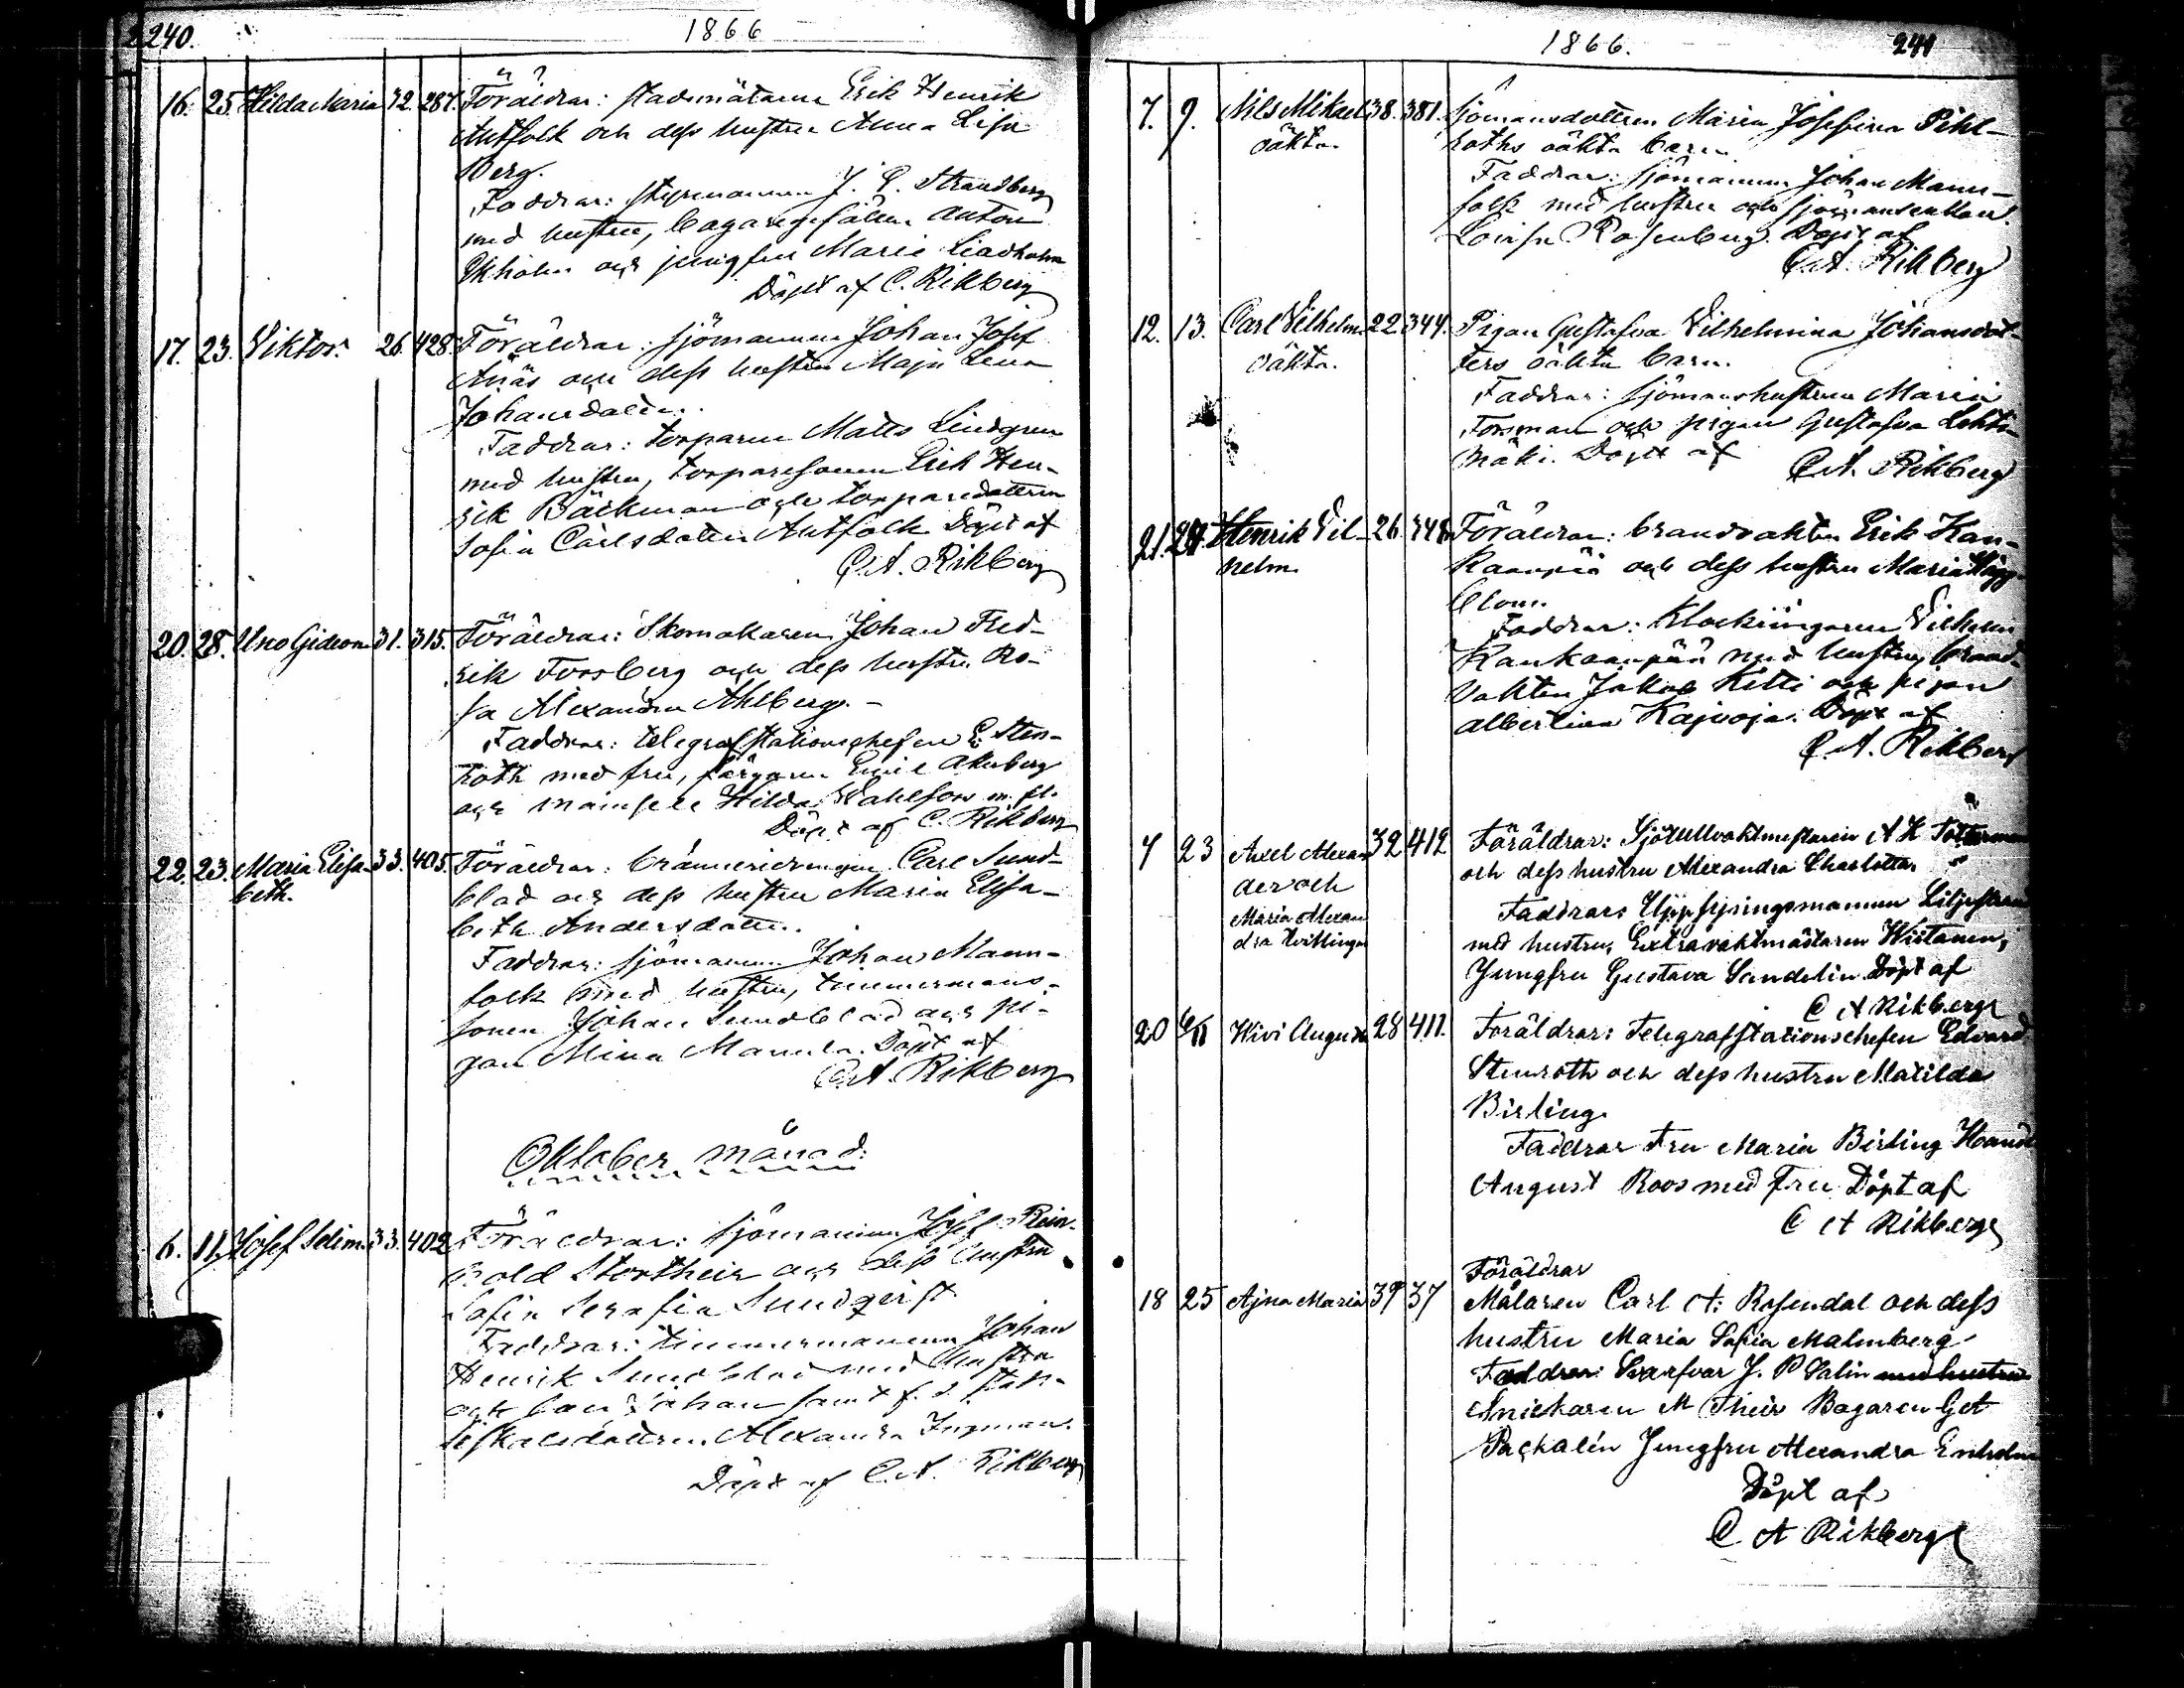 240.
1866
16. 25. Hilda Maria 32. 287. Föräldrar: stadsmätaren Erik Henrik
Antfolk och dess hustru Anna Lisa
Berg.
Faddrar: styrmannen J. E. Strandberg
med hustru, bagaregesällen Anton
Ekholm och jungfru Maria Lindholm
Döpt af C. Rikberg
17. 23. Viktor. 26. 428. Föräldrar: sjömannen Johan Josef
Anäs och dess hustru Maja Lena
Johansdotter.
Faddrar: torparen Matts Lindgren
med hustru, torparesonen Erik Hen-
rik Bäckman och torparedottren
Sofia Carlsdotter Antfolk Döpt af
C. A. Rikberg
20. 28. Uno Gideon 31. 315. Föräldrar: Skomakaren Johan Fred-
rik Forsberg och dess hustru Ro-
sa Alexandra Ahlberg. -
Faddrar: telegrafstationschefen E. Sten-
roth med fru, färgaren Emil Åkerberg
och mamsell Hilda Wahlfors m. fl.
Döpt af C. Rikberg
22. 23. Maria Elisa- 33. 405. Föräldrar: bränneridrängen Carl Sund-
beth. blad och dess hustru Maria Elisa-
beth Andersdotter.
Faddrar: sjömannen Johan Mann-
folk med hustru, timmermans-
sonen Johan Sundblad och pi-
gan Mina Mannila. Döpt af
C. A. Rikberg
Oktober månad.
6. 11. Josef Selim. 33. 402 Föräldrar: sjömannen Josef Rein-
hold Stortheir och dess hustru
Sofia Serafia Sundqvist.
Faddrar: timmermannen Johan
Henrik Sundblad med hustru
och Johan samt f. d. stads-
fiskalsdottren Alexandra Ingman.
Döpt af C. A. Rikberg
1866.
241
7. 9. Nils Mikael 38. 381. Sjömansdottren Maria Josefina Pihl-
oäkta. roths oäkta barn
Faddrar: sjömannen Johan Mann-
folk med hustru och sjömansenkan
Lovisa Rosenberg. Döpt af
C. A. Rikberg
12. 13. Carl Vilhelm 22 344. Pigan Gustafva Vilhelmina Johansdot-
oäkta. ters oäkta barn.
Faddrar: sjömanshustrun Maria
Forsman och pigan Gustafva Lehti-
mäki. Döpt af
C. A. Rikberg
21. 24. Henrik Vil- 26. 348. Föräldrar: brandvakten Erik Kan-
helm. kaanpää och dess hustru Maria Hägg-
blom.
Faddrar: Klockringaren Vilhelm
Kankaanpää med hustru, brand-
vakten Jakob Ketti och pigan
Albertina Kajvoja. Döpt af
C. A. Rikberg
7 23 Axel Alexan 32 412 Föräldrar: Sjötullvaktmästaren A H Totterman
der och och dess hustru Alexandra Charlotta
Maria Alexan Faddrar: Uppsyningsmannen Liljestrand
dra tvillingar med hustru, Extravaktmästaren Wistanen,
Jungfru Gustava Sandelin. Döpt af
C A Rikberg
20 6/11 Wivi Augusta 28 411. Föräldrar: Telegrafstationschefen Edvard
Stenroth och dess hustru Matilda
Birling.
Faddrar Fru Maria Birling Handl
August Roos med Fru Döpt af
C A Rikberg
Föräldrar
18 25 Ajna Maria 39 37 Målaren Carl A: Rosendal och dess
hustru Maria Sofia Malmberg
Faddrar: Svarfvar J. P Salin med hustru
Snickaren M Their Bagaren Get
Paçhalén Jungfru Alexandra Enholm
Döpt af
C A Rikberg